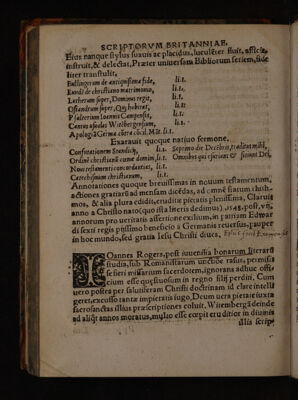 SCRIPTORVM BRITANNIAE.
Eius nanque stylus suauis ac placidus, luculẽter fluit, afficit,
instruit, & delectat. Præter uniuersam Bibliorum seriem, fide
liter transtulit,
Bullingerum de antiquissima fide, li.1.
Eundẽ de christiano matrimonio, li.1.
Lutherum super, Dominus regit, li.1.
Osiandrum super, Qui habitat, li.1.
Psalterium Ioannis Campensis, li.1.
Cantus aliquos Witebergensium, li.1.
Apologiã Germa cõtra cõcil. Mãt. li.1.
Exarauit quoque natiuo sermone,
Confutationem Standich, li.1.
Ordinẽ christianẽ cœnæ domini, li.1.
Noui testamenti concordantias, li.1.
Catechismum christianum, li.1.
Annotationes quoque breuissimas in nouum testamentum,
actiones gratiarũ ad mensam dicẽdas, ad omnẽ statum rhith-
mos, & alia plura edidit, eruditæ pietatis plenissima. Claruit
anno a Christo nato
annorum pro ueritatis assertione exilium, in patriam Edwar
di sexti regis pijssimo beneficio a Germanis reuersus, pauper
in hoc mundo, sed gratia Iesu Christi diues,
IOannes Rogers, post iuuenilia bonarum literarũ
studia, sub Romanistarum unctione rasus, permisit
se fieri missarium sacerdotem, ignorans adhuc offi
cium esse quæstuosum in regno filij perditi. Cum
uero postea per salutiferam Christi doctrinam id clare intelli
geret, excusso tantæ impietatis iugo, Deum uera pietate iuxta
sacrosanctas illius præscriptiones coluit. Witembergæ deinde
ad aliqt annos moratus, multo esse cœpit eruditior in diuinis
illis scrip